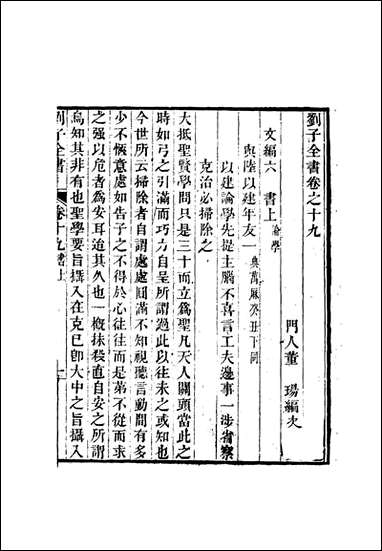 劉子全書卷之十九
門人董　瑒編次
文編六　書上論學
與陸以建年友一與萬厤癸丑下同
以建論學先提主腦不喜言工夫邊事一涉省察
克治必掃除之
大抵聖賢學問只是三十而立爲聖凡天人關頭當此之
時如弓之引滿而巧力自呈所謂過此以往未之或知也
今世所云掃除者自謂處處圓滿不知視聽言動間有多
少不愜意處如告子之不得於心往往而是第不從而求
之强以危者爲安耳迨其久也一槪抹殺直自安之所謂
烏知其非有也聖學要旨攝入在克已卽大中之旨攝入
劉子全書　卷十九書上　一